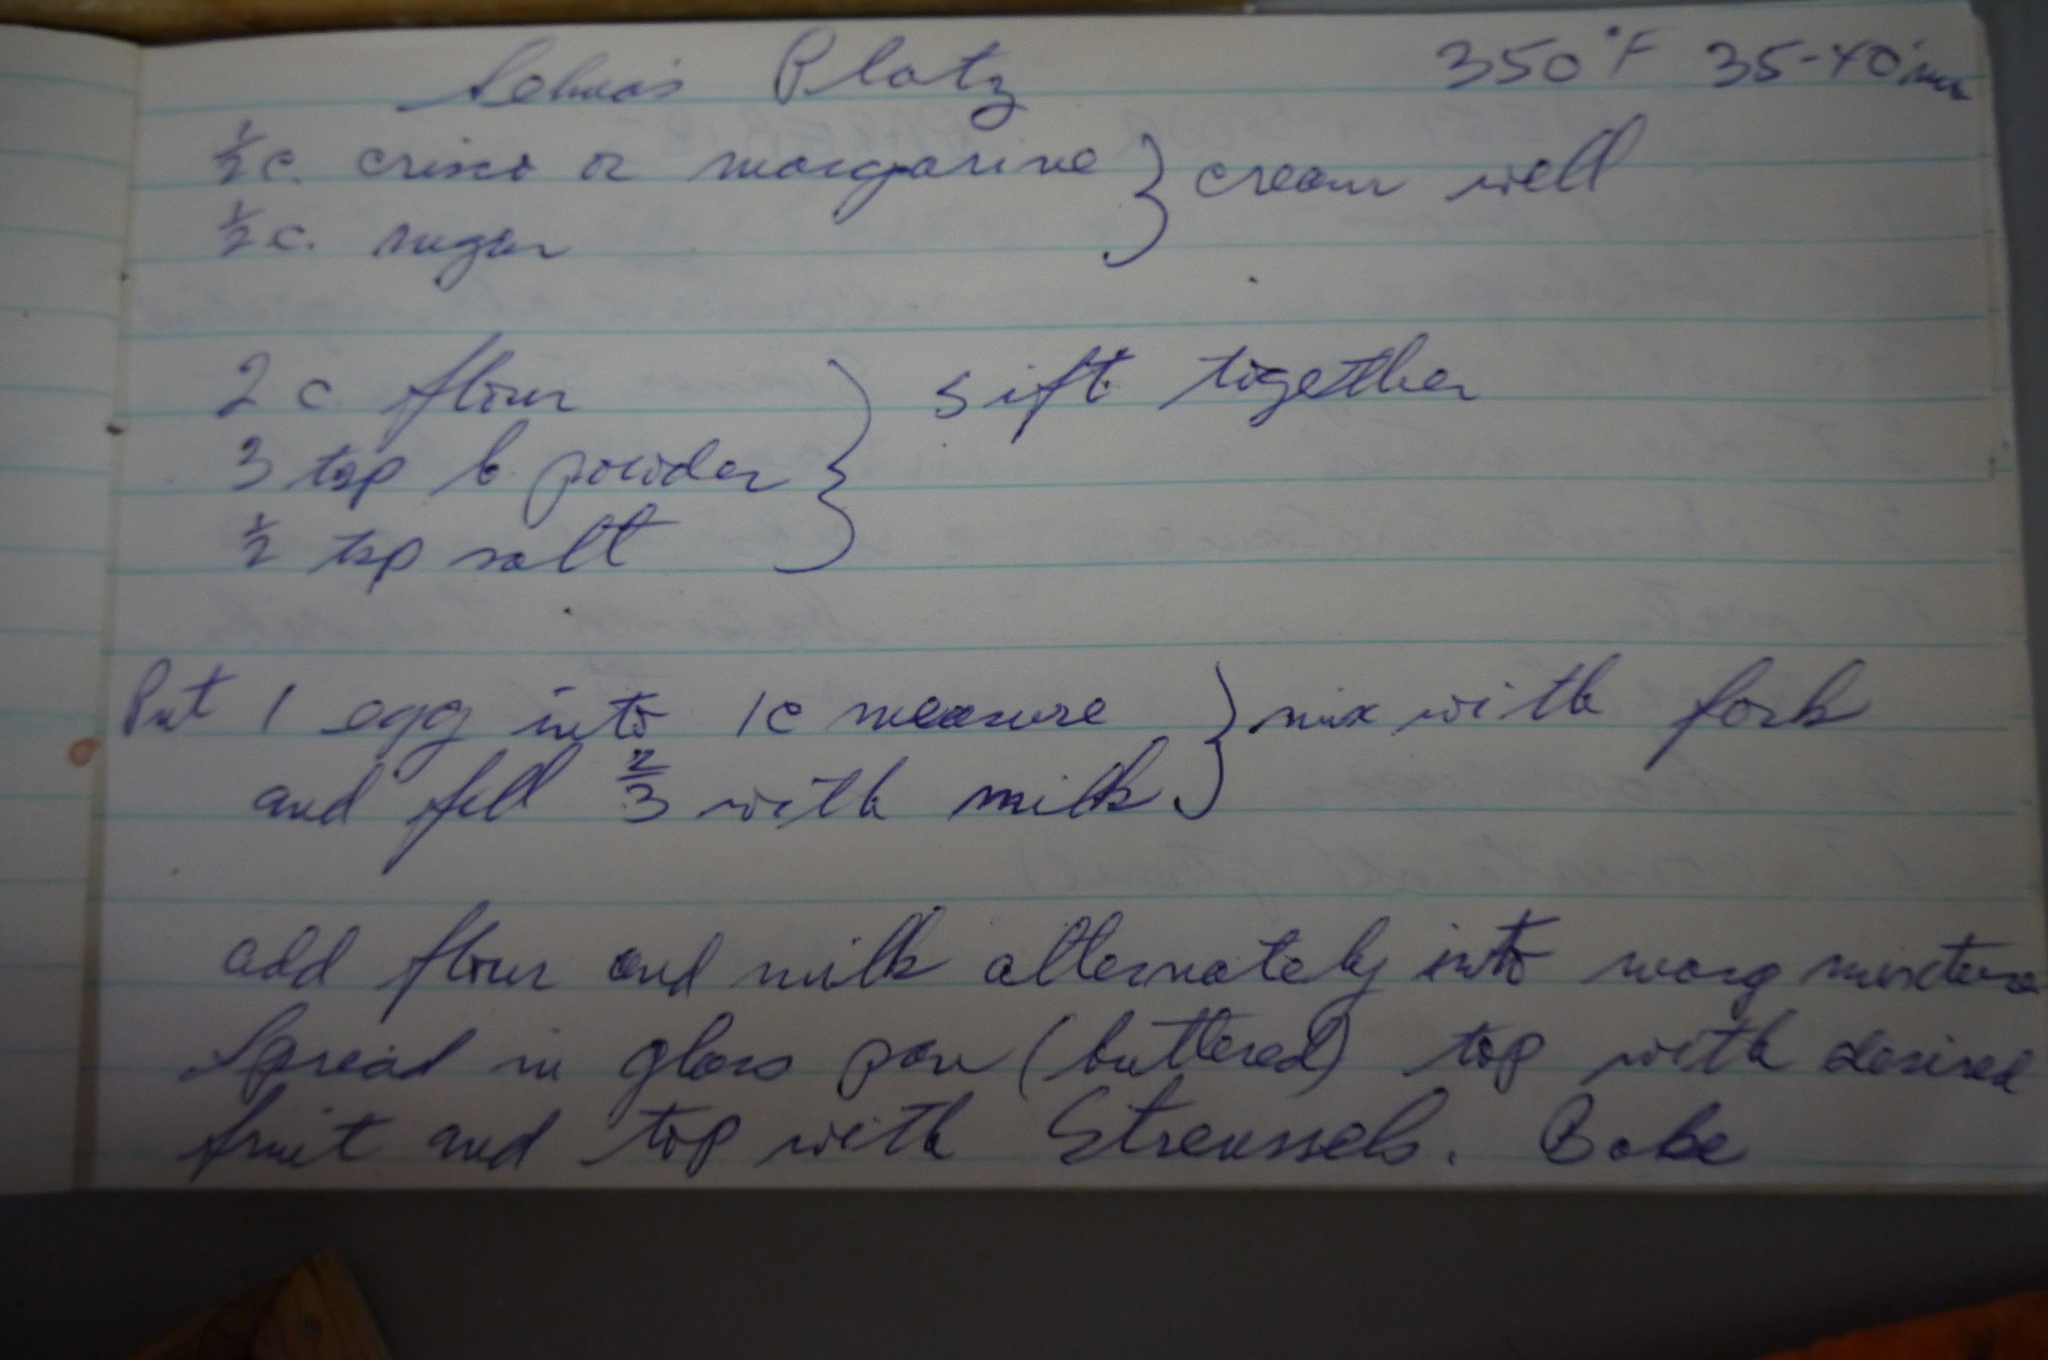 Selma's Platz 350°F 35-40 min
½ c. crisco or margarine } cream well
½ c. sugar
2 c flour } sift together
3 tsp b. powder
½ tsp salt
Put 1 egg into 1c measure } mix with fork
and fill ⅔ with milk
add flour and milk alternately into marg mixture
Spread in glass pan (buttered) top with desired
fruit and top with Streussels. Bake